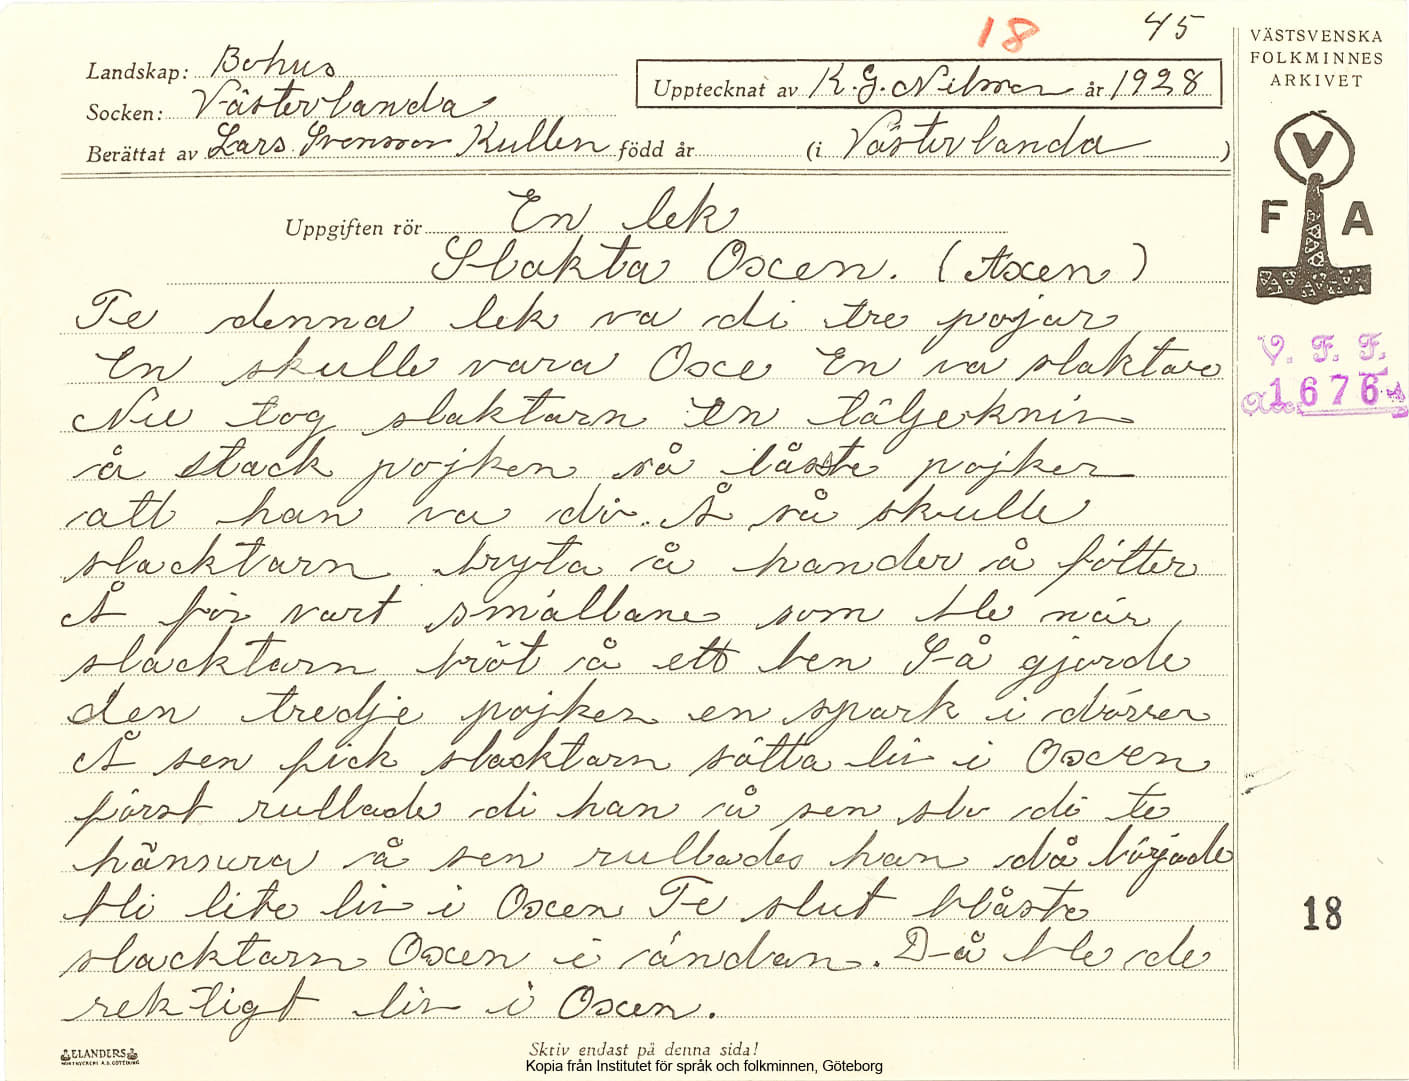 18 45
Landskap: Bohus
Upptecknat av K.G. Nilson år 1928
Socken: Västerlanda
Berättat av Lars Svensson Kullen född år (i Västerlanda)
Uppgiften rör En lek
Slakta Oxen. (Axen)
Te denna lek va di tre pojar
En skulle vara Oxe En va slaktare
Nu tog slaktarn en täljekniv
å stack pojken så låste pojken
att han va dö. Å så skulle
slacktarn bryta å hander å fötter
Å för vart smällane som ble när
slacktarn bröt å ett ben Så gjorde
den tredje pojken en spark i dörren
Å sen fick slacktarn sätta liv i Oxen
först rullade di han å sen slo di te
hänsura å sen rullades han då började
bli lite liv i Oxen Te slut blåste
slacktarn Oxen i ändan. Då ble de
rektigt liv i Oxen.
Skriv endast på denna sida!
ELANDERS
BOKTRYCKERI A.B. GÖTEBORG
Kopia från Institutet för språk och folkminnen, Göteborg
VÄSTSVENSKA
FOLKMINNES
ARKIVET
V
F A
V. F. F.
1676
18